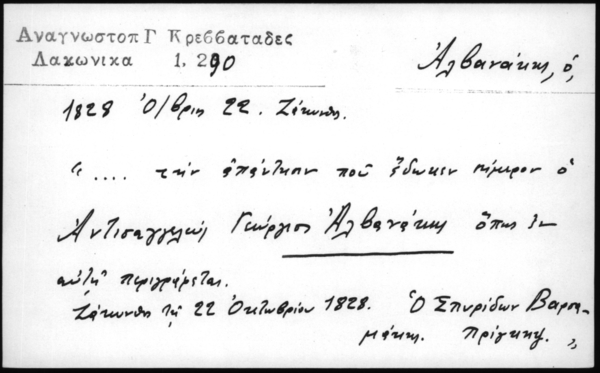 Αναγνωστοπ Γ Κρεββαταδες
Λακωνικα 1, 290
Ἀλβανάκης, ὁ,
1828 Ὀ/βριος 22. Ζάκυνθος.
".... τὴν ἀπάντησιν ποῦ ἔδωκεν σήμερον ὁ
Ἀντισαγγελεὺς Γεώργιος Ἀλβανάκης ὅπως ἐν
αὐτῇ περιγράφεται.
Ζάκυνθος τῇ 22 Ὀκτωβρίου 1828. Ὁ Σπυρίδων Βαρσα-
μάκης. Πρίγκηψ. "